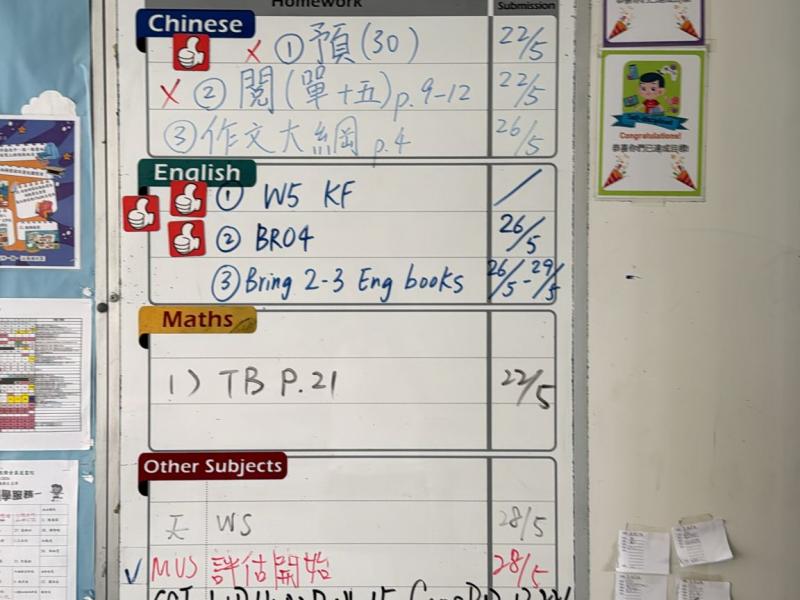 Homework Submission
Chinese
x ① 預(30) 22/5
x ② 閱(單十五)p.9-12 22/5
③ 作文大綱 p.4 26/5
English
① W5 KF /
② BR04 26/5
③ Bring 2-3 Eng books 26/5-29/5
Maths
1) TB P.21 22/5
Other Subjects
WS 28/5
✓ MUS 評估開始 28/5
Congratulations!
恭喜你們已達成目標!